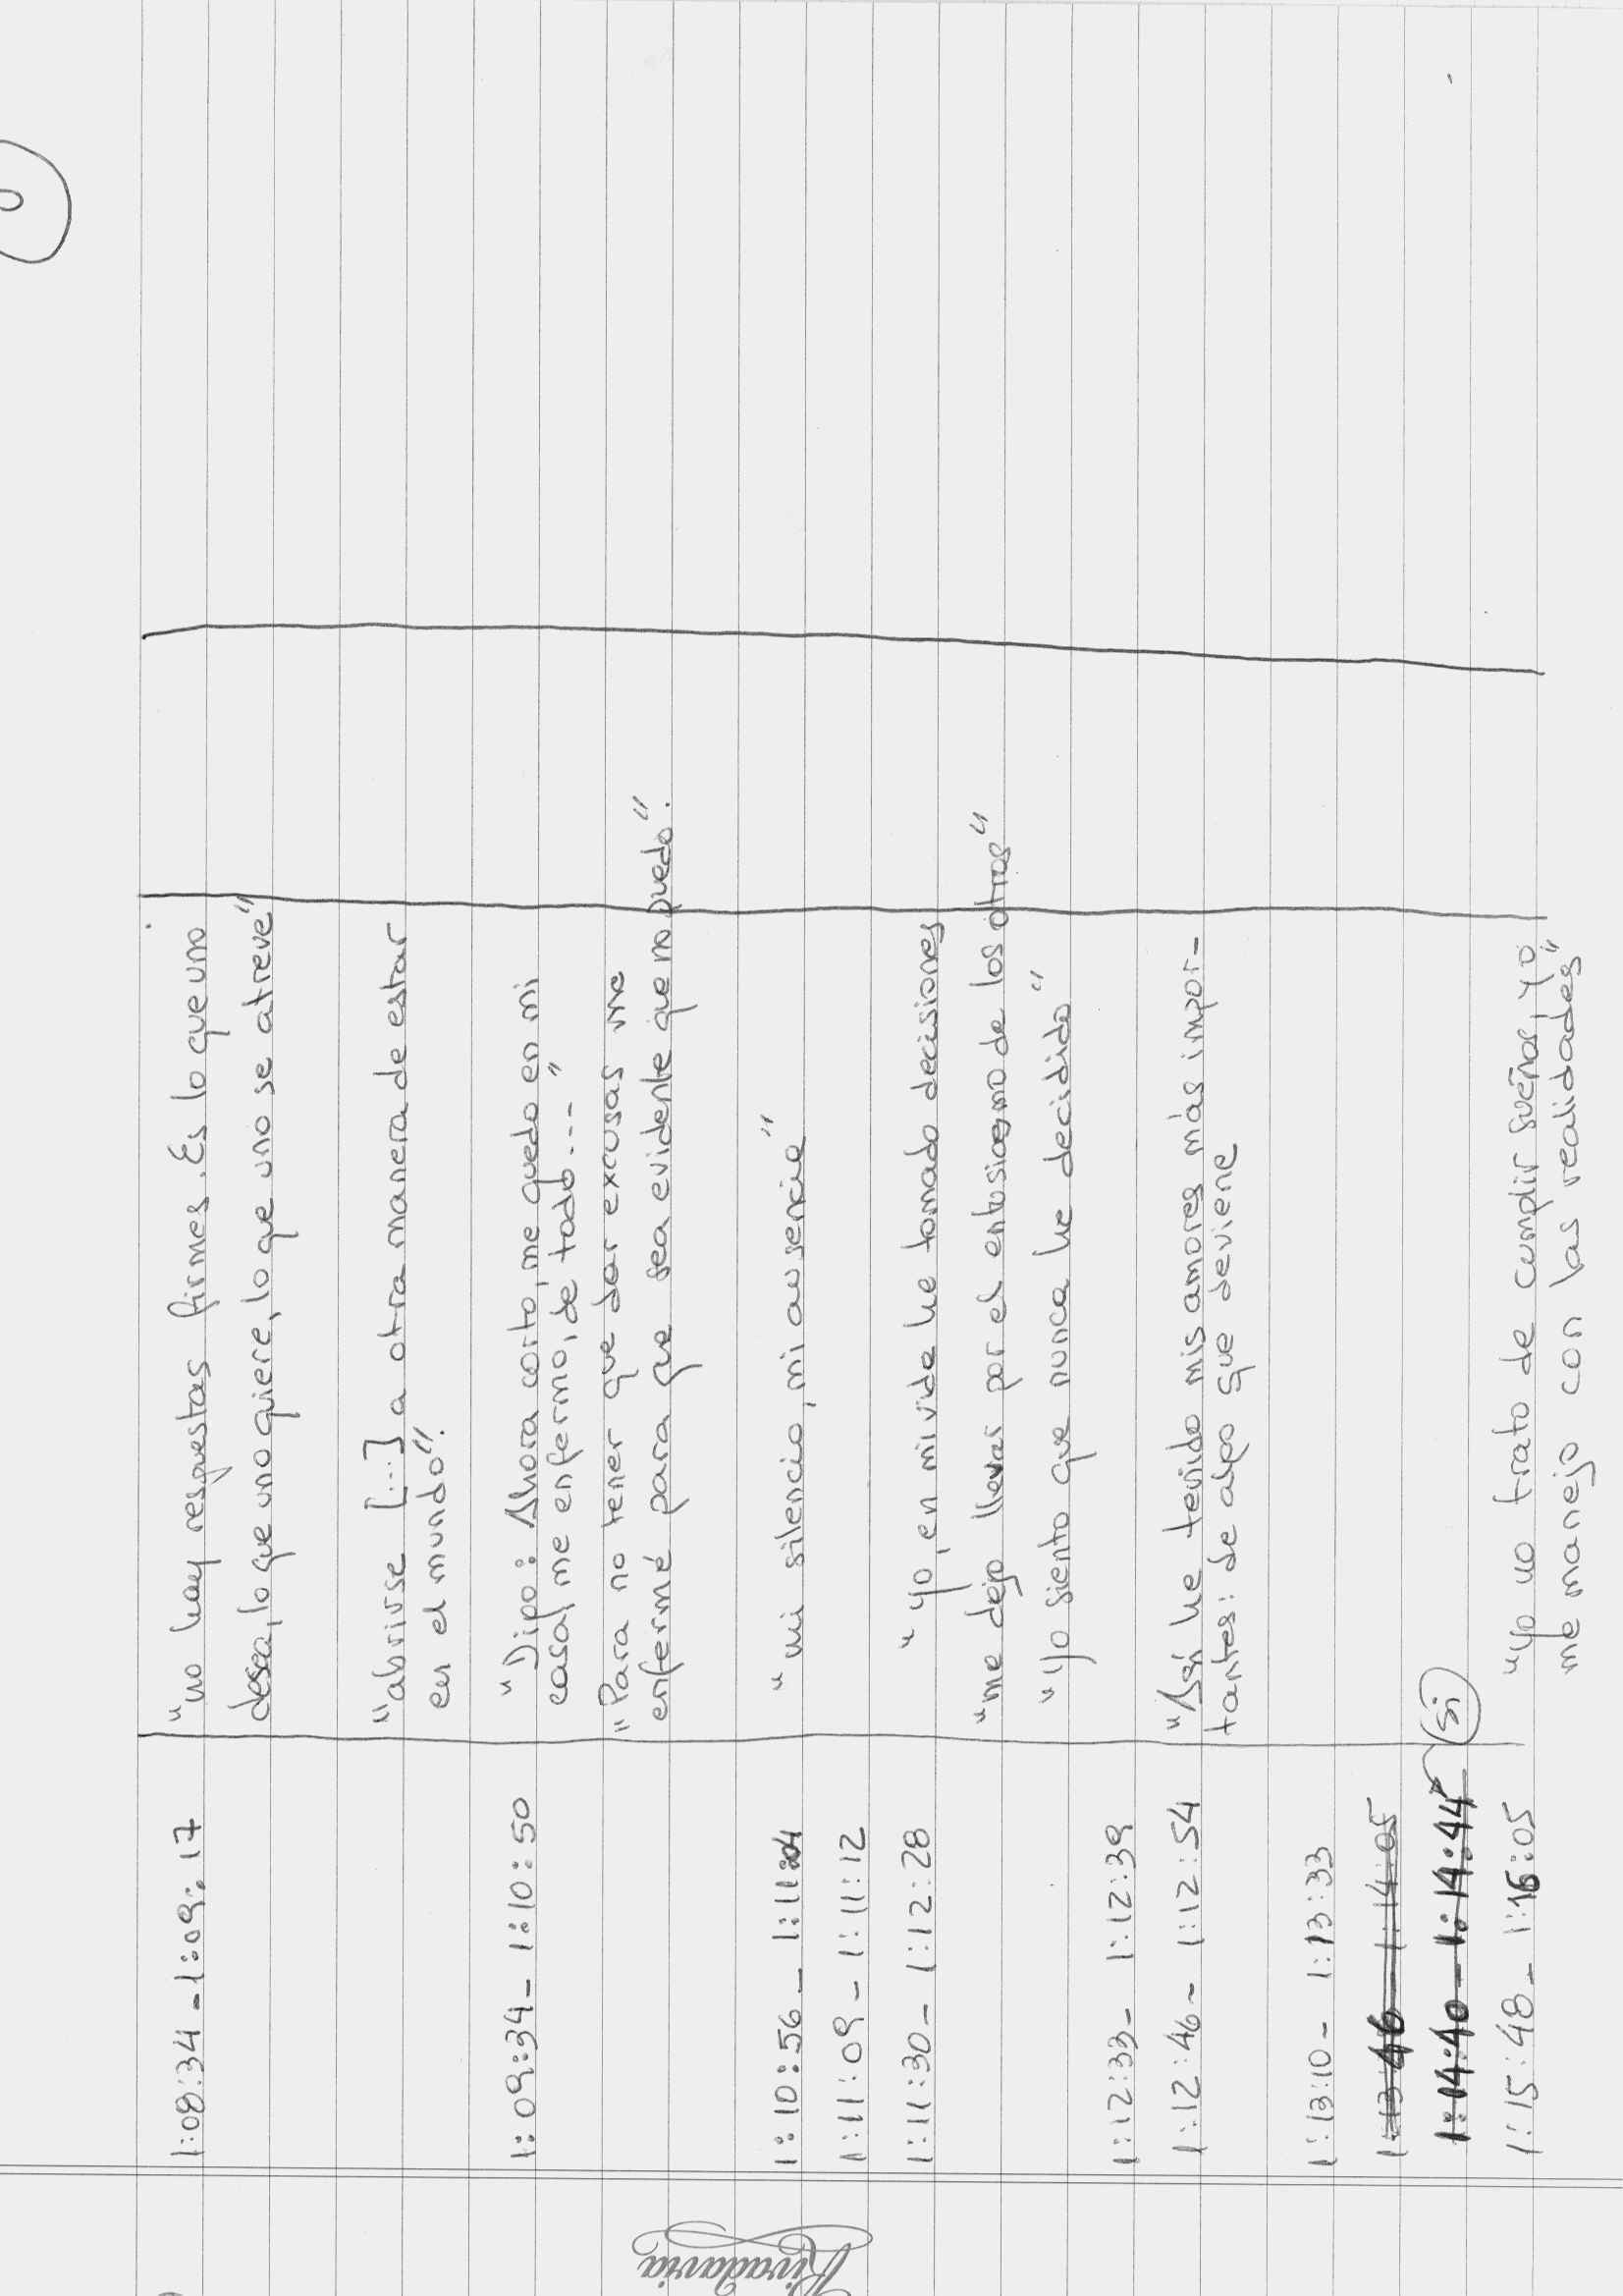 1:08:34 - 1:09:17 "no hay respuestas firmes. Es lo que uno
desea, lo que uno quiere, lo que uno se atreve"
"abrirse [...] a otra manera de estar
en el mundo".
1:09:34 - 1:10:50 "Digo: Ahora corto, me quedo en mi
casa, me enfermo, de todo..."
"Para no tener que dar excusas me
enfermé para que sea evidente que no puedo".
1:10:56 - 1:11:04 "mi silencio, mi ausencia"
1:11:09 - 1:11:12
1:11:30 - 1:12:28 "yo, en mi vida he tomado decisiones
"me dejo llevar por el entusiasmo de los otros"
"yo siento que nunca he decidido"
1:12:33 - 1:12:39
1:12:46 - 1:12:54 "Así he tenido mis amores más impor-
tantes: de algo que deviene
1:13:10 - 1:13:33
1:13:46 - 1:14:05
1:14:40 - 1:14:44 si
1:15:48 - 1:16:05 "yo no trato de cumplir sueños, yo
me manejo con las realidades"
Rivadavia